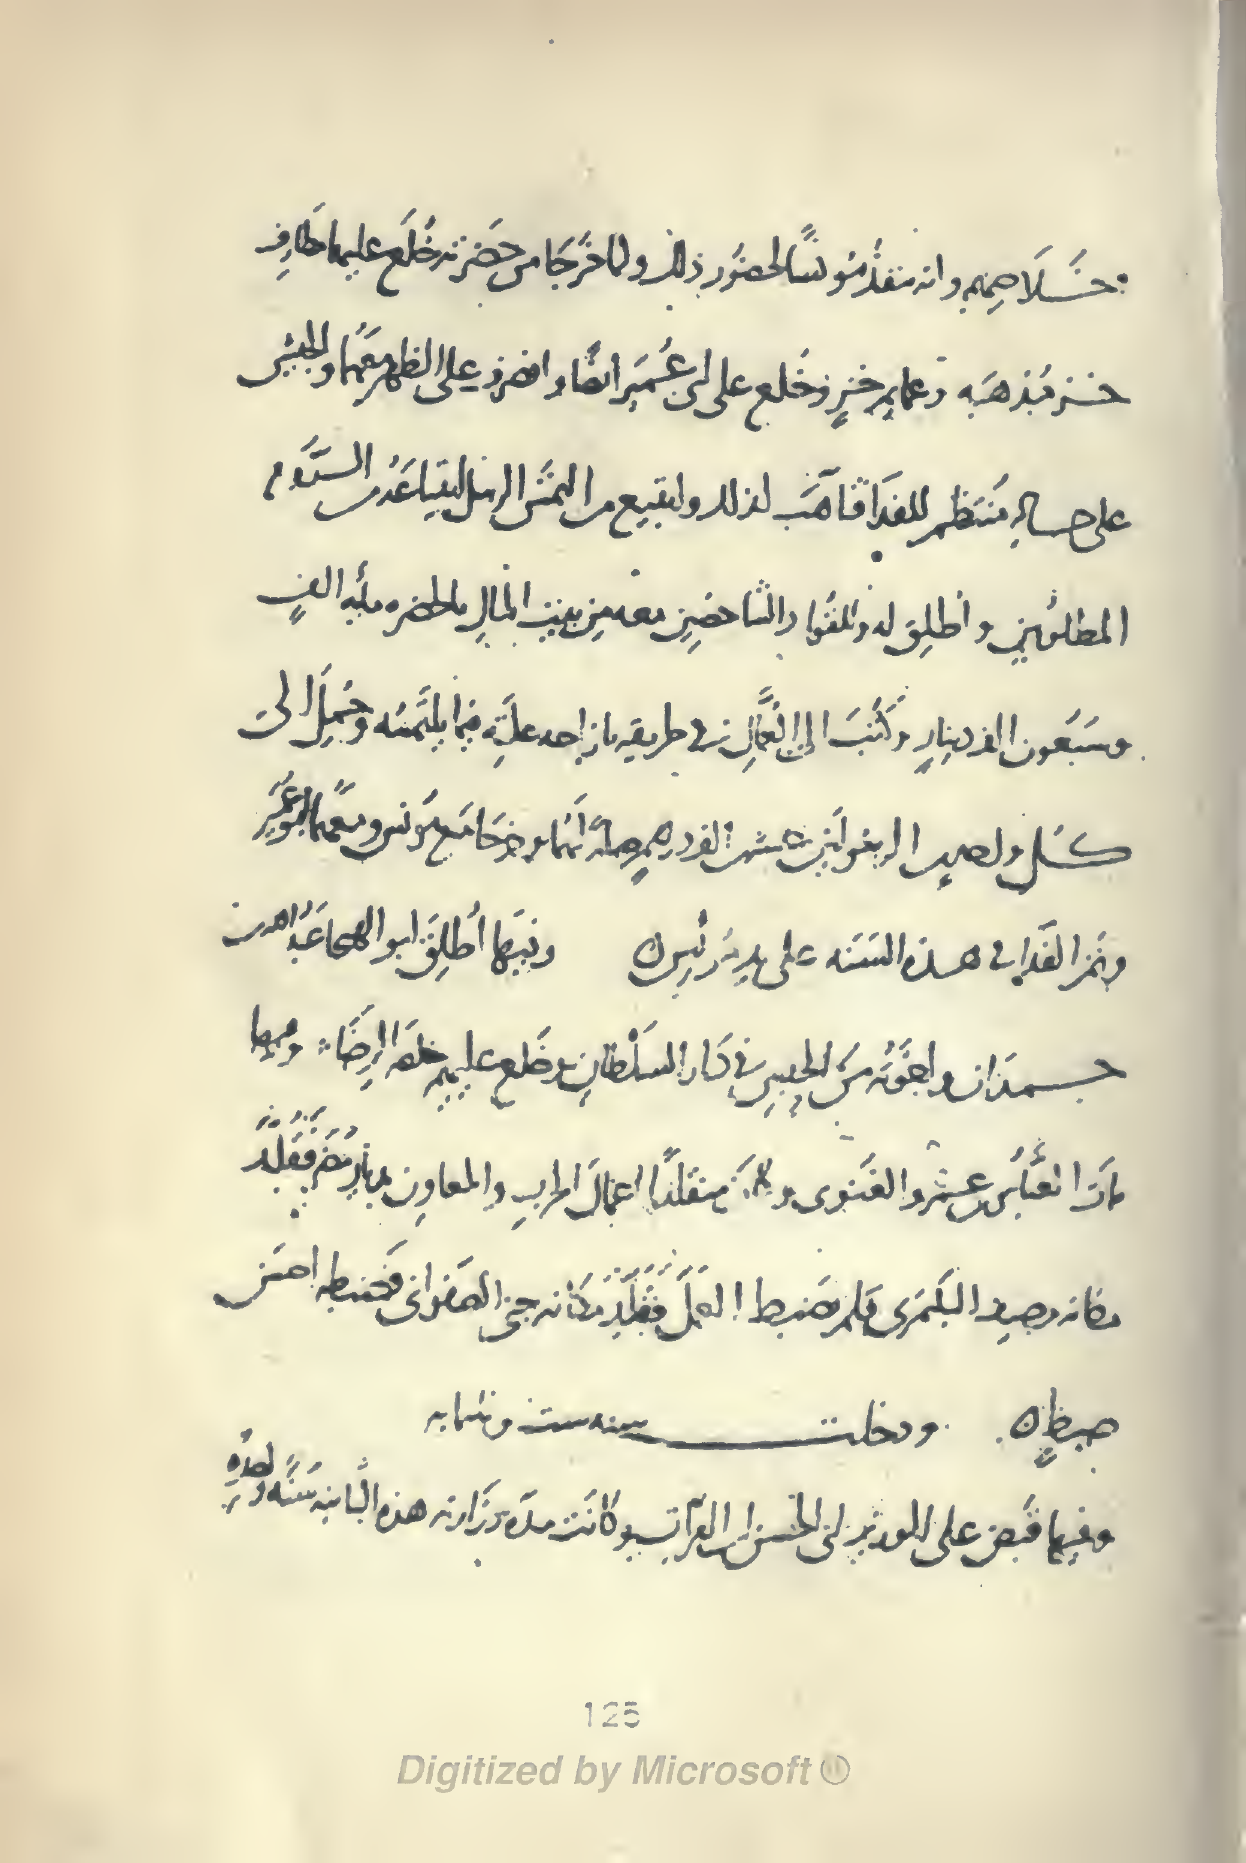 خلاصهم وانه منفذ مونسا لحضور ذلك ولما خرجا من حضرته خلع عليهما مطارف
خز مذهبه وعمايم خز وخلع على ابى عمير ايضا وانصرف على الظهر معهما والجيش
على حاله منتظم للفدا فتاهب لذلك وابتيع من الرسل من الروم
المطلوبين واطلق له وللقواد الشاخصين معه من بيت المال بالحضره مايه الف
وسبعون الف دينار وكتب الى العمال فى طريقه بازاحه علته فيما يلتمسه وحمل الى
كل واحد من الرسولين عشرين الف درهم صله لهما وخرجا مع مونس ومعهما ابو عمير
وتم الفدا فى هذه السنه على يد مونس وفيها اطلق ابو الهيجا عبد الله بن
حمدان واخوته من الحبس فى دار السلطان وخلع عليهم خلع الرضا وفيها
مات العباس بن عمرو الغنوى وكان متقلدا اعمال الحرب والمعاون بديار مضر فقلد
مكانه وصيف البكتمرى فلم يضبط العمل فقلد مكانه جنى الصفوانى فضبطه احسن
ضبط ودخلت سنه ست وثلثمايه
وفيها قبض على الوزير ابى الحسن ابن الفرات وكانت مده وزارته هذه الثانيه سنه واحده
125
Digitized by Microsoft ®